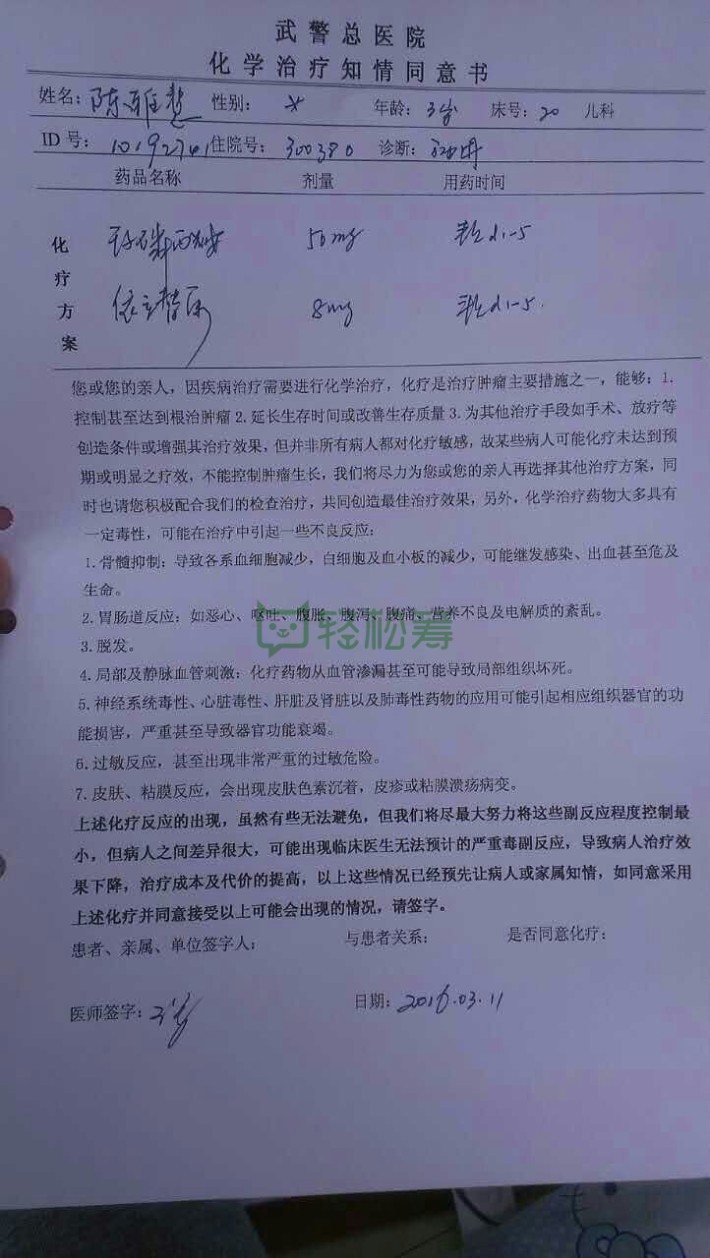 武警总医院
化学治疗知情同意书
姓名：陈雅慧 性别：女 年龄：3岁 床号：20 儿科
ID号：10192741 住院号：300380 诊断：
药品名称 剂量 用药时间
化疗方案
环磷酰胺 50mg d1-5
依立替康 8mg d1-5
您或您的亲人，因疾病治疗需要进行化学治疗，化疗是治疗肿瘤主要措施之一，能够：1.
控制甚至达到根治肿瘤2.延长生存时间或改善生存质量3.为其他治疗手段如手术、放疗等
创造条件或增强其治疗效果，但并非所有病人都对化疗敏感，故某些病人可能化疗未达到预
期或明显之疗效，不能控制肿瘤生长，我们将尽力为您或您的亲人再选择其他治疗方案，同
时也请您积极配合我们的检查治疗，共同创造最佳治疗效果，另外，化学治疗药物大多具有
一定毒性，可能在治疗中引起一些不良反应：
1.骨髓抑制：导致各系血细胞减少，白细胞及血小板的减少，可能继发感染、出血甚至危及
生命。
2.胃肠道反应：如恶心、呕吐、腹胀、腹泻、腹痛、营养不良及电解质的紊乱。
轻松筹
3.脱发。
4.局部及静脉血管刺激：化疗药物从血管渗漏甚至可能导致局部组织坏死。
5.神经系统毒性、心脏毒性、肝脏及肾脏以及肺毒性药物的应用可能引起相应组织器官的功
能损害，严重甚至导致器官功能衰竭。
6.过敏反应，甚至出现非常严重的过敏危险。
7.皮肤、粘膜反应，会出现皮肤色素沉着，皮疹或粘膜溃疡病变。
上述化疗反应的出现，虽然有些无法避免，但我们将尽最大努力将这些副反应程度控制最
小，但病人之间差异很大，可能出现临床医生无法预计的严重毒副反应，导致病人治疗效
果下降，治疗成本及代价的提高，以上这些情况已经预先让病人或家属知情，如同意采用
上述化疗并同意接受以上可能会出现的情况，请签字。
患者、亲属、单位签字人： 与患者关系： 是否同意化疗：
医师签字： 日期：2016.03.11